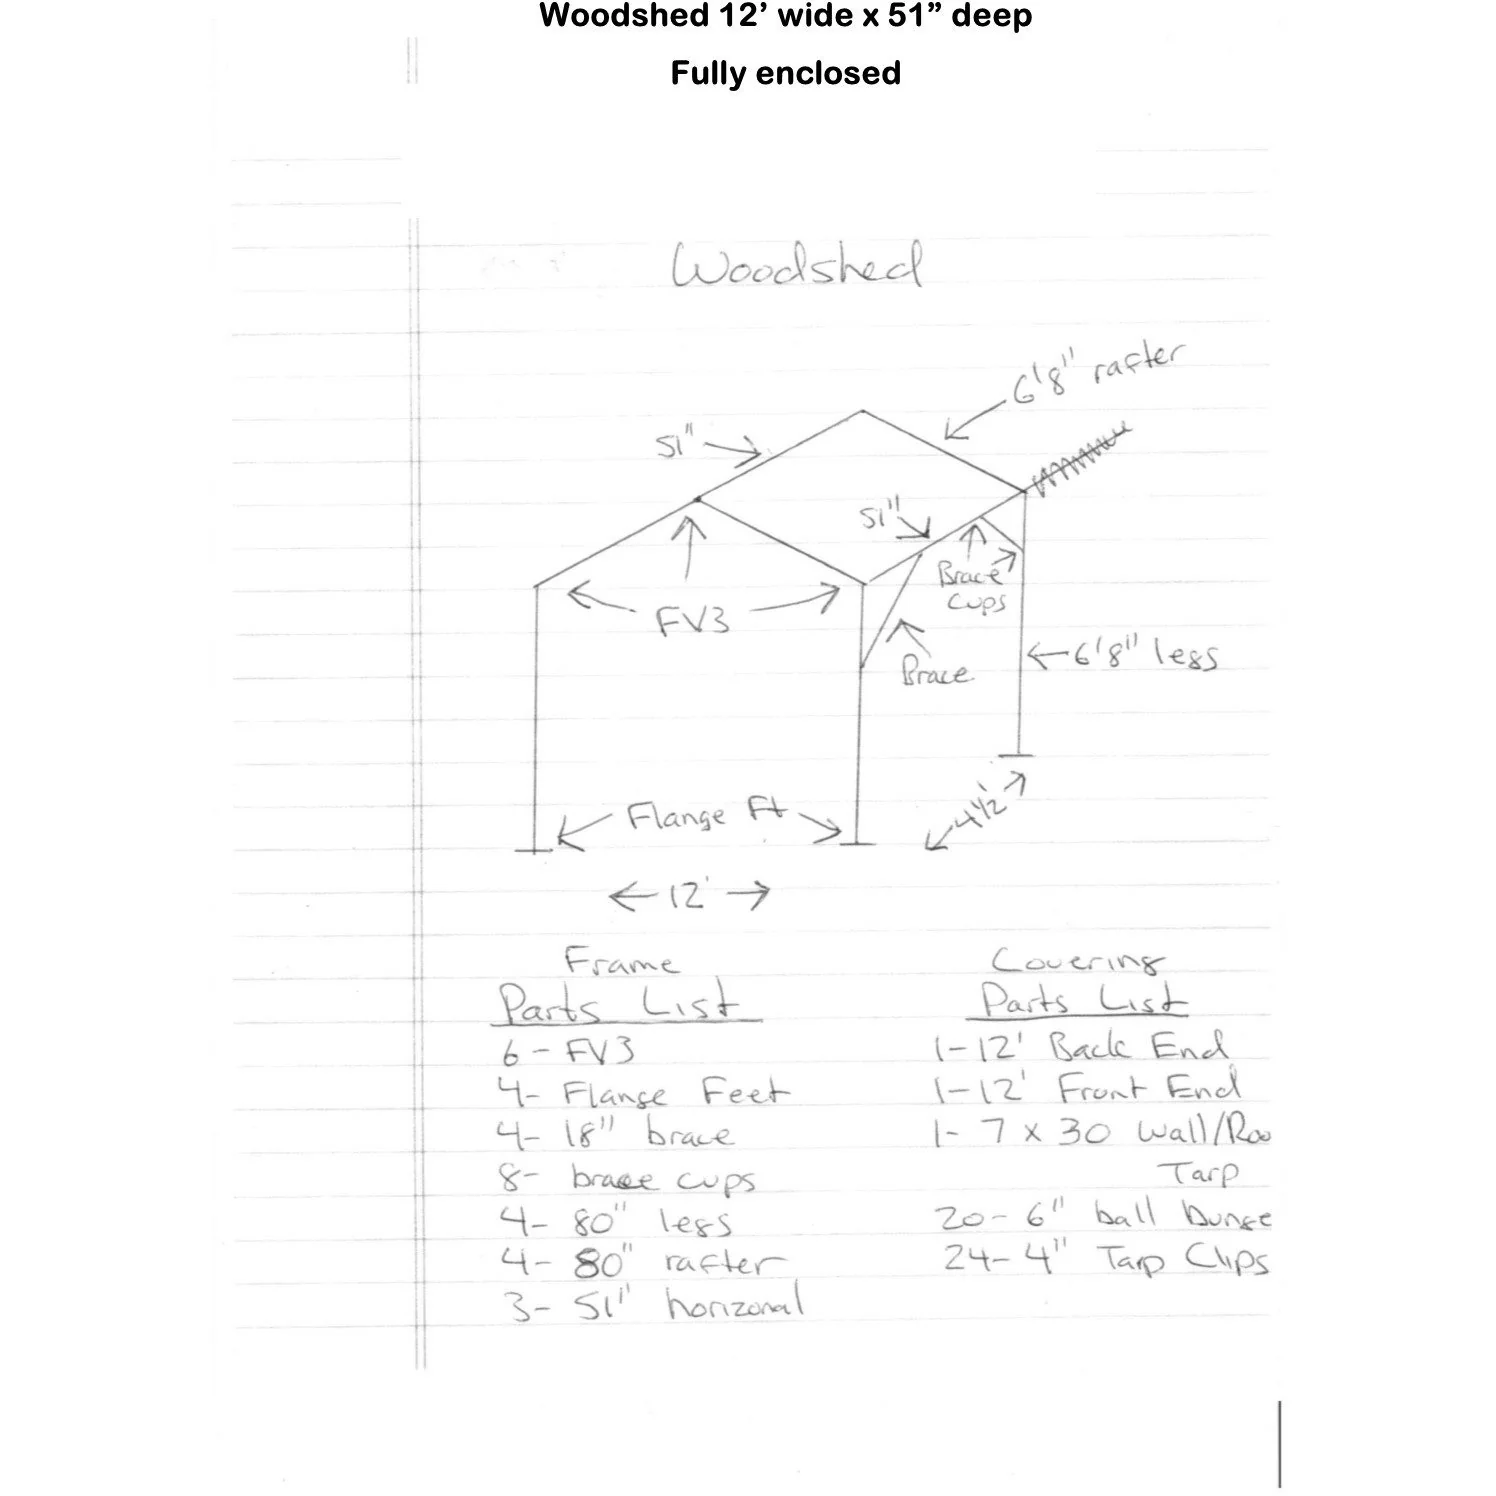 Woodshed 12’ wide x 51” deep
Fully enclosed
Woodshed
6'8" rafter
51"
51"
Brace
Cups
FV3
6'8" legs
Brace
Flange Ft
4½'
12'
Frame
Parts List
6 - FV3
4- Flange Feet
4- 18" brace
8- brace cups
4- 80" legs
4- 80" rafter
3- 51" horizonal
Covering
Parts List
1-12' Back End
1-12' Front End
1- 7 x 30 Wall/Roo
Tarp
20- 6" ball bunge
24- 4" Tarp Clips